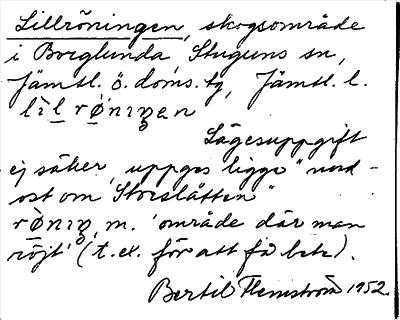 Lillröningen, skogsområde
i Borglunda, Stuguns sn,
Jämtl. ö. doms. tg, Jämtl. l.
lìl rø̀niŋen
Lägesuppgift
ej säker, uppges ligge "nord-
ost om Storslåtten"
rø̀niŋ, m. 'område där man
röjt' (t. ex. för att få bete).
Bertil Flemström 1952.